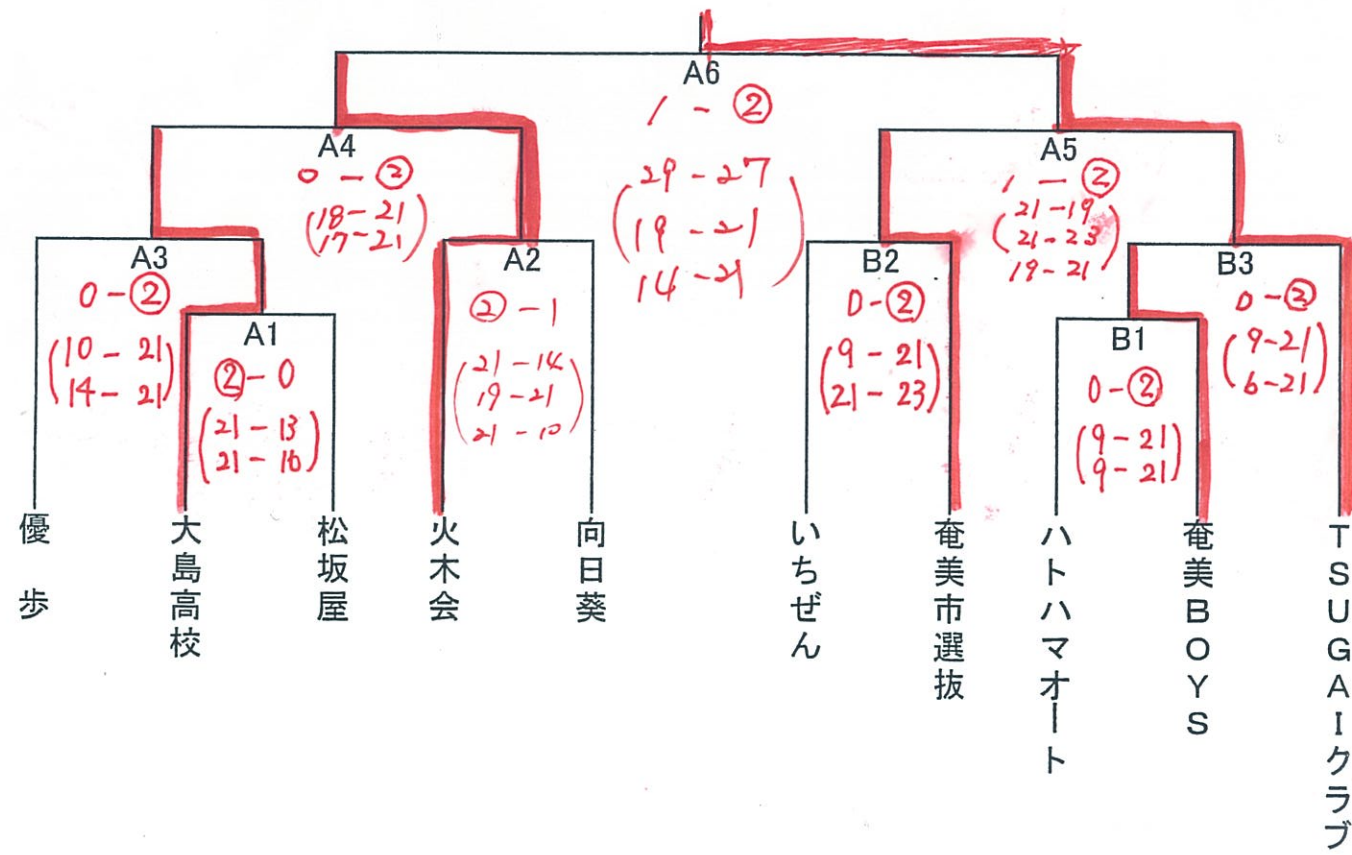 A6
1 - ②
29 - 27
19 - 21
14 - 21
A4
0 - ②
18 - 21
17 - 21
A5
1 - ②
21 - 19
21 - 23
19 - 21
A3
0 - ②
10 - 21
14 - 21
A2
② - 1
21 - 14
19 - 21
21 - 10
B2
0 - ②
9 - 21
21 - 23
B3
0 - ②
9 - 21
6 - 21
A1
② - 0
21 - 13
21 - 16
B1
0 - ②
9 - 21
9 - 21
優歩
大島高校
松坂屋
火木会
向日葵
いちぜん
奄美市選抜
ハトハマオート
奄美BOYS
TSUGAIクラブ